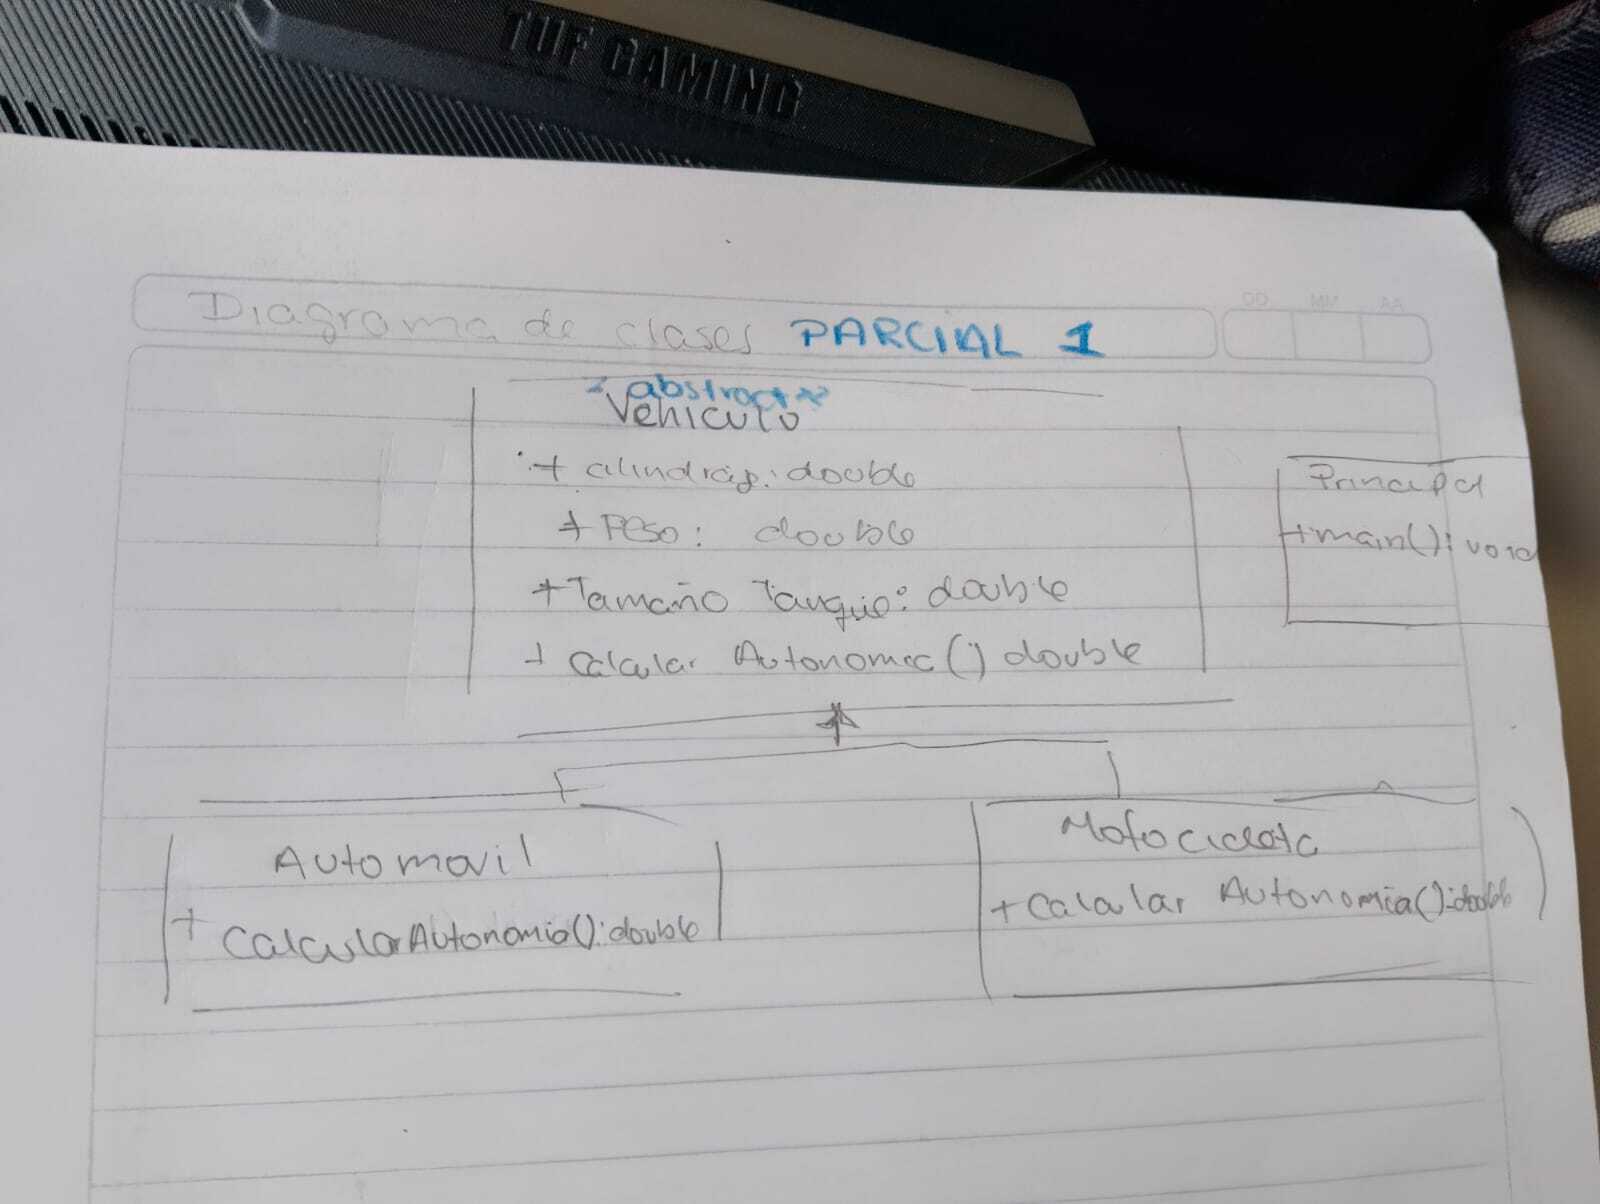 TUF GAMING
DD MM AA
Diagrama de clases PARCIAL 1
abstract
Vehiculo
+ cilindraje: double
+ Peso: double
+ Tamaño Tanque: double
+ Calcular Autonomia() double
Principal
+main(): void
Automovil
+ CalcularAutonomia():double
Motocicleta
+ Calcular Autonomia():double